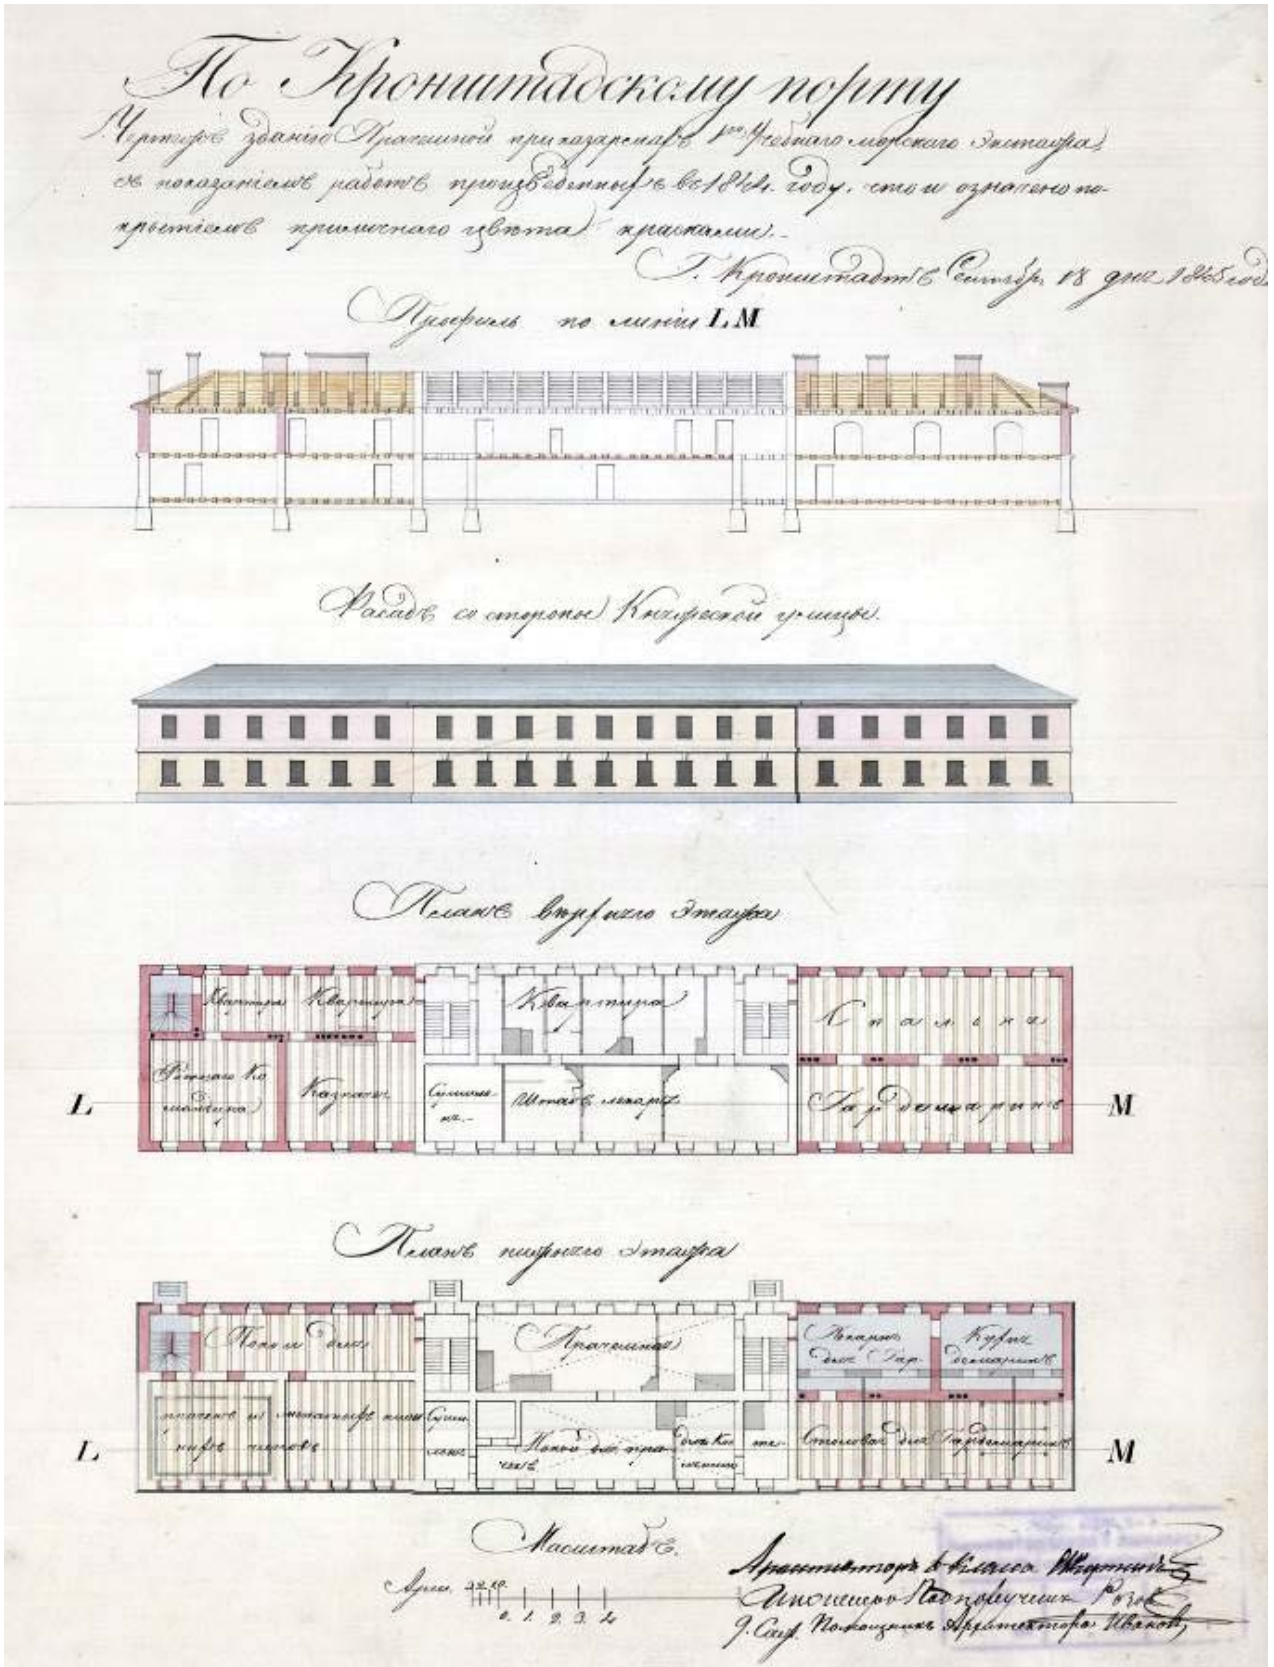 По Кронштадскому порту
Чертежъ зданію Прачешной при казармахъ 1го Учебнаго морскаго Экипажа,
съ показаніемъ работъ произведенныхъ въ году. что и означено по-
крытіемъ приличнаго цвѣта красками.
Г. Кронштадтъ Сентябр. 18 дня
Профиль по линіи L M
Фасадъ со стороны улицы.
Планъ верхнего Этажа
Квартира Квартира Квартира Спальня
Ротнаго Ко
мандира Казначея Сушиль
ня.- Штабъ лекаря Гардемаринъ
L M
Планъ нижнего этажа
Покои для Прачешная Пекарня
для Гар- Кухня
демаринъ
прачекъ и нижнихъ чиновъ
Суши
льня Покой для пра
чекъ Столовая для Гардемаринъ
L M
Масштабъ.
Арш.
0. 1. 2. 3. 4
Архитекторъ класса
Инженеръ Подпоручикъ
Помощникъ Архитектора Ивановъ